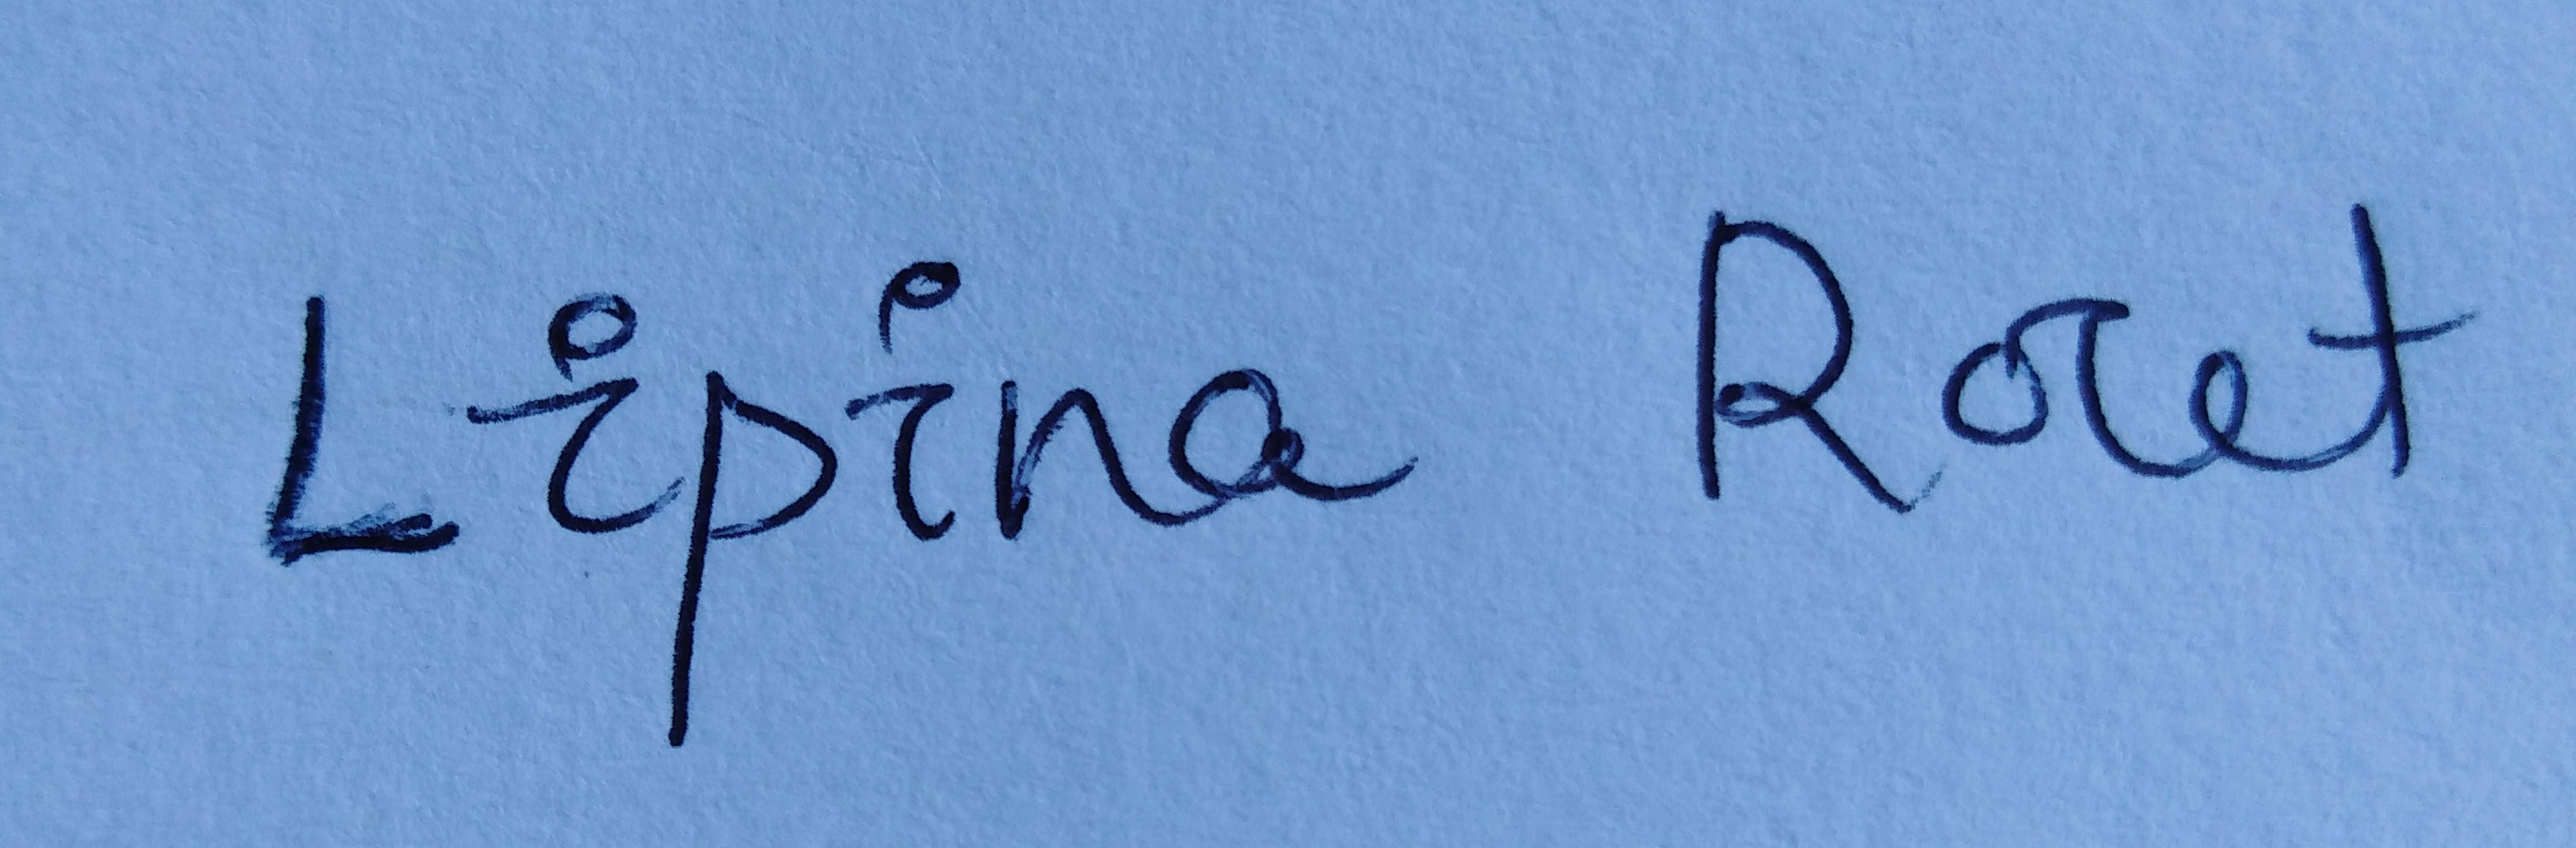 Lipina Rott